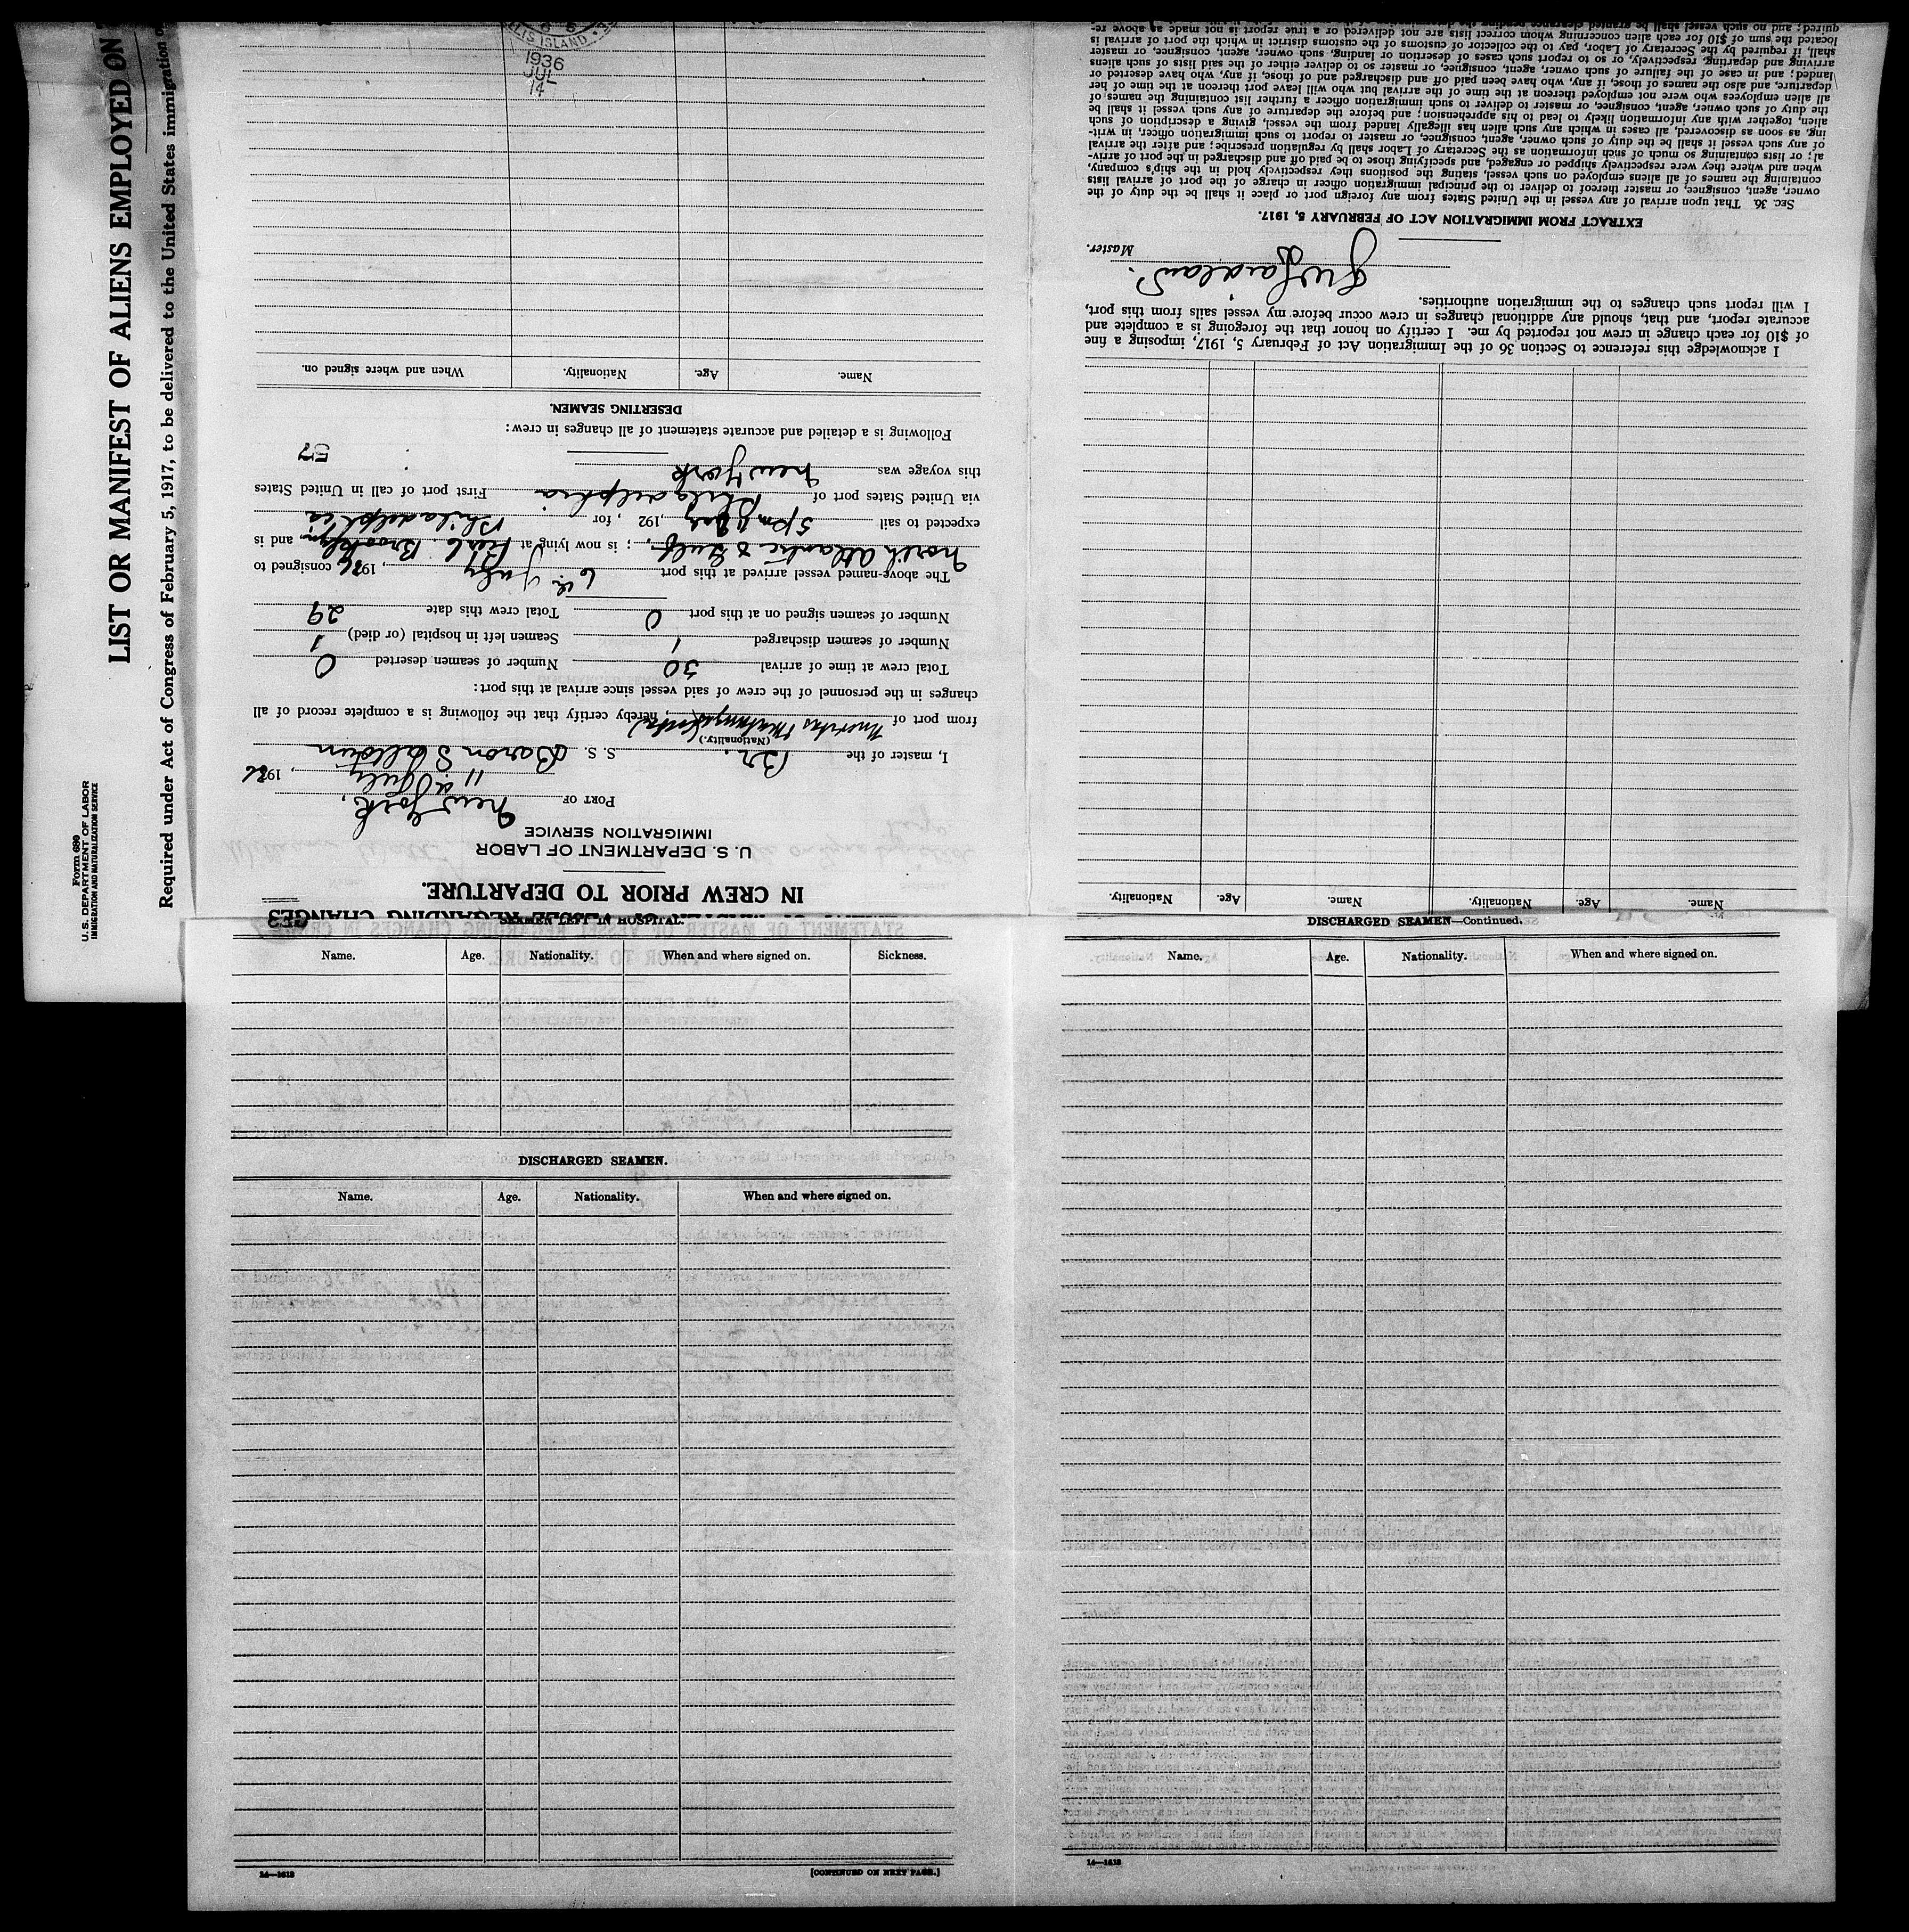 Form 680
U. S. DEPARTMENT OF LABOR
IMMIGRATION AND NATURALIZATION SERVICE
LIST OR MANIFEST OF ALIENS EMPLOYED ON
Required under Act of Congress of February 5, 1917, to be delivered to the United States immigration
IN CREW PRIOR TO DEPARTURE.
U. S. DEPARTMENT OF LABOR
IMMIGRATION SERVICE
PORT OF New York,
11 July, 1936
I, master of the Br. S. S. Baron
(Nationality.)
from port of , hereby certify that the following is a complete record of all
changes in the personnel of the crew of said vessel since arrival at this port:
Total crew at time of arrival 30 Number of seamen deserted 0
Number of seamen discharged 1 Seamen left in hospital (or died) 1
Number of seamen signed on at this port 0 Total crew this date 29
The above-named vessel arrived at this port 6th July, 1936 consigned to
North Atlantic & Gulf, ; is now lying at Brooklyn and is
expected to sail 5pm July, 192 , for Philadelphia
via United States port of Philadelphia First port of call in United States
this voyage was New York
57
Following is a detailed and accurate statement of all changes in crew:
DESERTING SEAMEN.
Name. Age. Nationality. When and where signed on.
ELLIS ISLAND
1936
JUL
14
Name. Age. Nationality. Name. Age. Nationality.
I acknowledge this reference to Section 36 of the Immigration Act of February 5, 1917, imposing a fine
of $10 for each change in crew not reported by me. I certify on honor that the foregoing is a complete and
accurate report, and that, should any additional changes in crew occur before my vessel sails from this port,
I will report such changes to the immigration authorities.
Master.
EXTRACT FROM IMMIGRATION ACT OF FEBRUARY 5, 1917.
SEC. 36. That upon arrival of any vessel in the United States from any foreign port or place it shall be the duty of the
owner, agent, consignee, or master thereof to deliver to the principal immigration officer in charge of the port of arrival lists
containing the names of all aliens employed on such vessel, stating the positions they respectively hold in the ship's company,
when and where they were respectively shipped or engaged, and specifying those to be paid off and discharged in the port of arriv-
al; or lists containing so much of such information as the Secretary of Labor shall by regulation prescribe; and after the arrival
of any such vessel it shall be the duty of such owner, agent, consignee, or master to report to such immigration officer, in writ-
ing, as soon as discovered, all cases in which any such alien has illegally landed from the vessel, giving a description of such
alien, together with any information likely to lead to his apprehension; and before the departure of any such vessel it shall be
the duty of such owner, agent, consignee, or master to deliver to such immigration officer a further list containing the names of
all alien employees who were not employed thereon at the time of the arrival but who will leave port thereon at the time of her
departure, and also the names of those, if any, who have been paid off and discharged and of those, if any, who have deserted or
landed; and in case of the failure of such owner, agent, consignee, or master so to deliver either of the said lists of such aliens
arriving and departing, respectively, or so to report such cases of desertion or landing, such owner, agent, consignee, or master
shall, if required by the Secretary of Labor, pay to the collector of customs of the customs district in which the port of arrival is
located the sum of $10 for each alien concerning whom correct lists are not delivered or a true report is not made as above re-
quired; and no such vessel shall be granted clearance pending the
SEAMEN LEFT IN HOSPITAL.
Name. Age. Nationality. When and where signed on. Sickness.
DISCHARGED SEAMEN.
Name. Age. Nationality. When and where signed on.
14—1618 [CONTINUED ON NEXT PAGE.]
DISCHARGED SEAMEN—Continued.
Name. Age. Nationality. When and where signed on.
14—1618